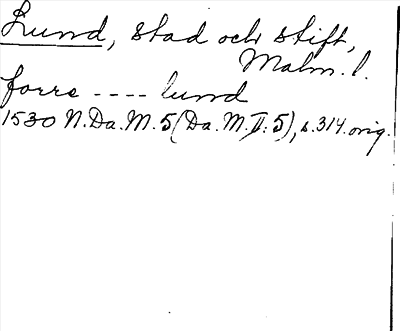 Lund, stad och stift,
Malm. l.
forre ---- lund
1530 N.Da.M. 5 (Da.M.II:5), s.314. orig.